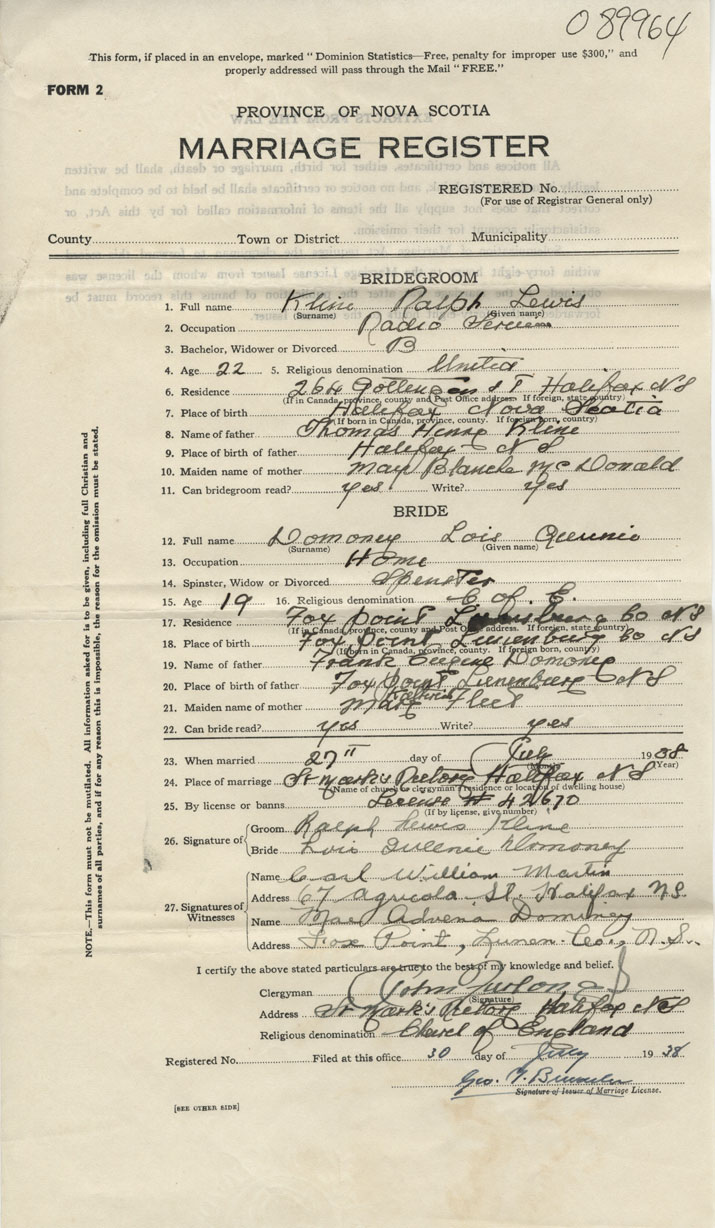 089964
This form, if placed in an envelope, marked "Dominion Statistics—Free, penalty for improper use $300," and
properly addressed will pass through the Mail "FREE."
FORM 2
PROVINCE OF NOVA SCOTIA
MARRIAGE REGISTER
REGISTERED No.
(For use of Registrar General only)
County Town or District Municipality
BRIDEGROOM
1. Full name Kline Ralph Lewis
(Surname) (Given name)
2. Occupation Radio
3. Bachelor, Widower or Divorced B
4. Age 22 5. Religious denomination United
6. Residence 264 Gottengen ST Halifax NS
(If in Canada, province, county and Post Office address. If foreign, state country)
7. Place of birth Halifax Nova Scotia
(If born in Canada, province, county. If foreign born, country)
8. Name of father Thomas Henry Kline
9. Place of birth of father Halifax NS
10. Maiden name of mother May Blanche McDonald
11. Can bridegroom read? yes Write? yes
BRIDE
12. Full name Domoney Lois Queenie
(Surname) (Given name)
13. Occupation Home
14. Spinster, Widow or Divorced Spinster
15. Age 19 16. Religious denomination C of E.
17. Residence Fox Point Lunenburg Co NS
(If in Canada, province, county and Post Office address. If foreign, state country)
18. Place of birth Fox Point Lunenburg Co NS
(If born in Canada, province, county. If foreign born, country)
19. Name of father Frank Eugene Domoney
20. Place of birth of father Fox Point Lunenburg NS
21. Maiden name of mother Mary
22. Can bride read? yes Write? yes
23. When married 27" day of July 1938
(Month) (Year)
24. Place of marriage St Mark's Rectory Halifax NS
(Name of church or clergyman's residence or location of dwelling house)
25. By license or banns License # 42670
(If by license, give number)
26. Signature of Groom Ralph Lewis Kline
Bride Lois Queenie Domoney
27. Signatures of Witnesses
Name Carl William Martin
Address 67 Agricola St. Halifax N.S.
Name Mae Advena Dominey
Address Fox Point, Lunen. Co., N.S.
I certify the above stated particulars are true to the best of my knowledge and belief.
Clergyman John Furlong
(Signature)
Address St Mark's Rectory Halifax NS
Religious denomination Church of England
Registered No. Filed at this office 30 day of July 1938
Geo.
Signature of Issuer of Marriage License.
[SEE OTHER SIDE]
NOTE.—This form must not be mutilated. All information asked for is to be given, including full Christian and
surnames of all parties, and if for any reason this is impossible, the reason for the omission must be stated.